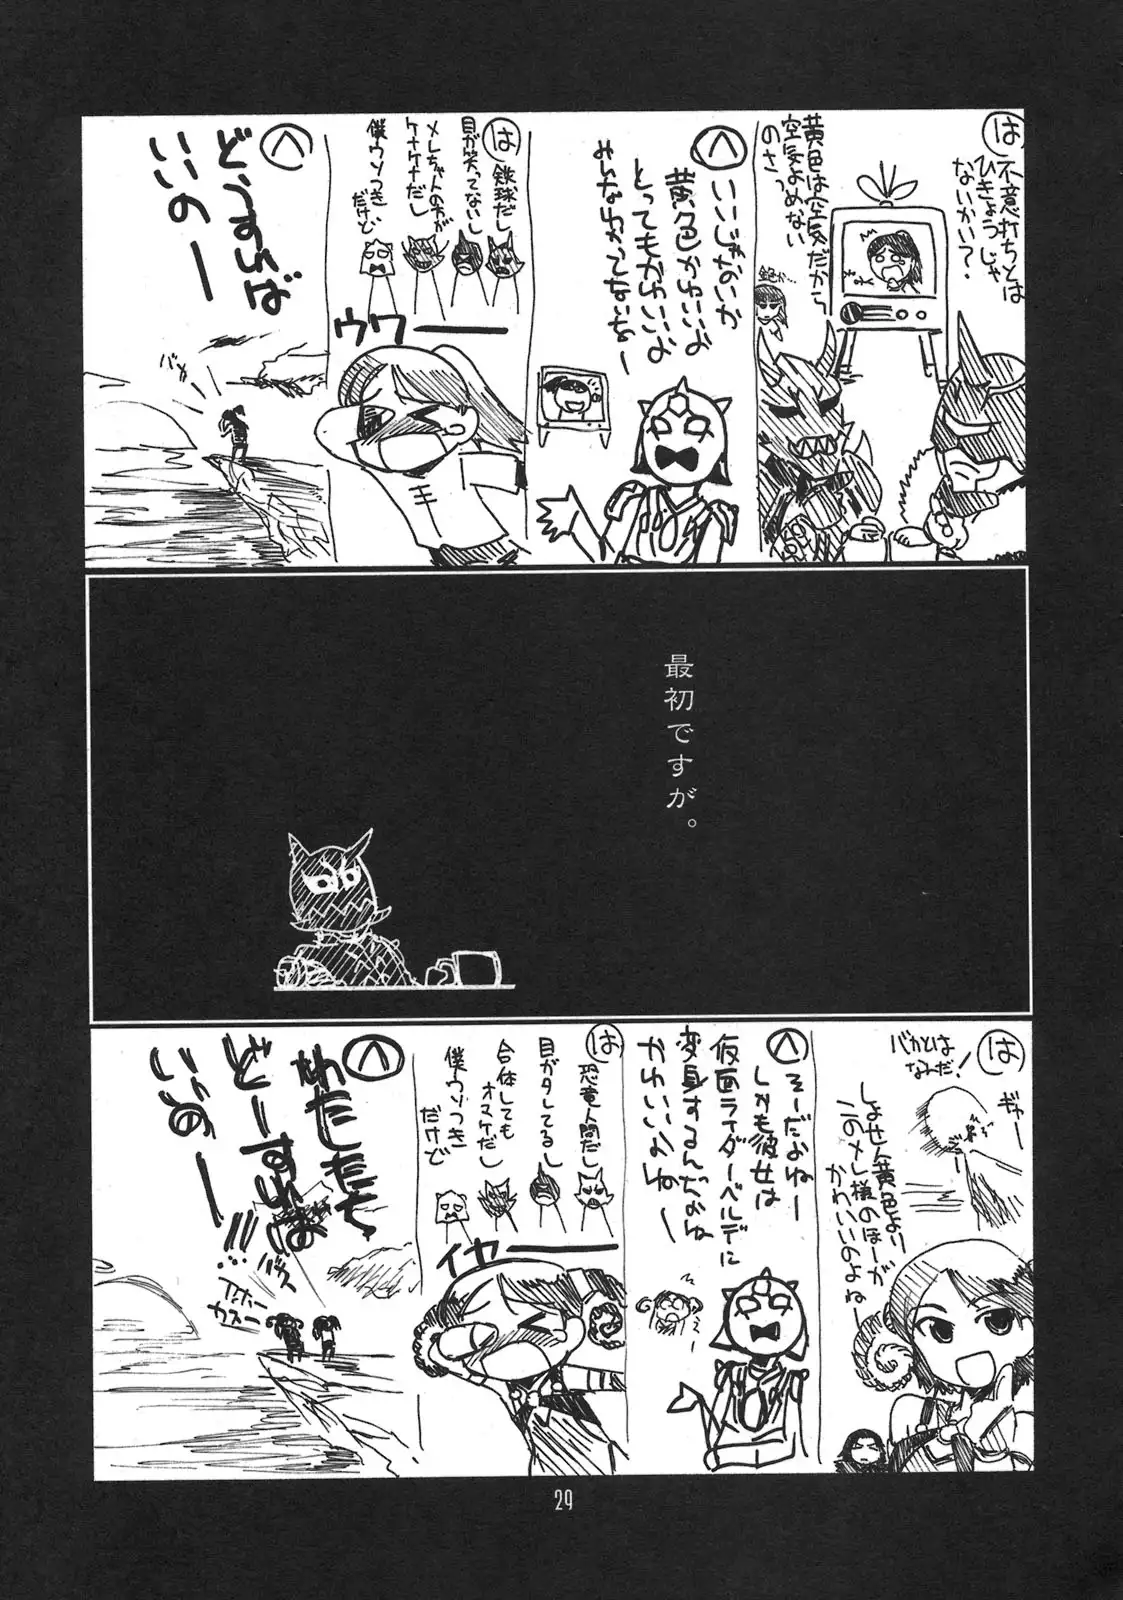 は
不意打ちとは
ひきょうじゃ
ないかい?
黄色は空気だから
空気よめない
のさっ
へ
いいじゃないか
黄色かわいいよ
とってもかわいいよ
みんなわかってないなー
は
鉄球だし
目が笑ってないし
メレちゃんの方が
ケナケナだし
僕ウソつき
だけど
ウワーーー
へ
どうすれば
いいのー
バカー
最初ですが。
は
バカとは
なみだ!
ギャー
しょせん黄色より
このメレ様のほーが
かわいいのよねー
へ
そーだよねー
しかも彼女は
仮面ライダーベルデに
変身するんだよね
かわいいよねー
は
恐竜人間だし
目がタレてるし
合体しても
オマケだし
僕ウソつき
だけど
イヤーーー
へ
わたしたち
どーすれば
いいのー
アホー
カスー
29